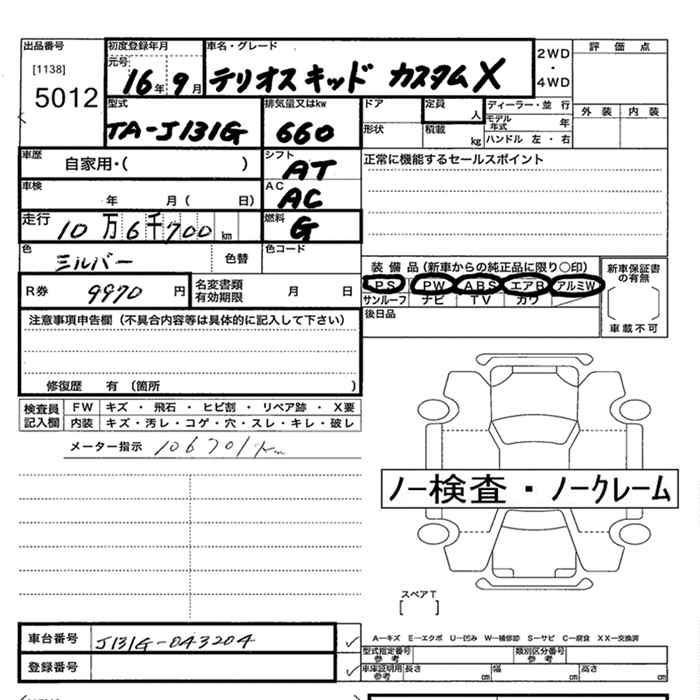 出品番号 初度登録年月 車名・グレード 2WD・4WD 評価点
[1138] 元号
5012 16年 9月 テリオスキッド カスタムX
型式 排気量又はkw ドア 定員 人 ディーラー・並行 外装 内装
TA-J131G 660 形状 積載 kg モデル年式 年
ハンドル 左・右
車歴 シフト 正常に機能するセールスポイント
自家用・( ) AT
車検 AC
年 月( 日) AC
走行 10万6千700km 燃料 G
色 シルバー 色替 色コード
装備品(新車からの純正品に限り○印) 新車保証書の有無
R券 9970円 名変書類有効期限 月 日 PS PW ABS エアB アルミW
サンルーフ ナビ TV カワ
注意事項申告欄(不具合内容等は具体的に記入して下さい) 後日品 車載不可
修復歴 有(箇所 )
検査員記入欄 FW キズ・飛石・ヒビ割・リペア跡・X要
内装 キズ・汚レ・コゲ・穴・スレ・キレ・破レ
メーター指示 106701km
ノー検査・ノークレーム
スペアT
[ ]
車台番号 J131G-043204 A-キズ E-エクボ U-凹み W-補修跡 S-サビ C-腐食 XX-交換済
登録番号 型式指定番号 参考 類別区分番号 参考
車庫証明用 参考 長さ cm 幅 cm 高さ cm